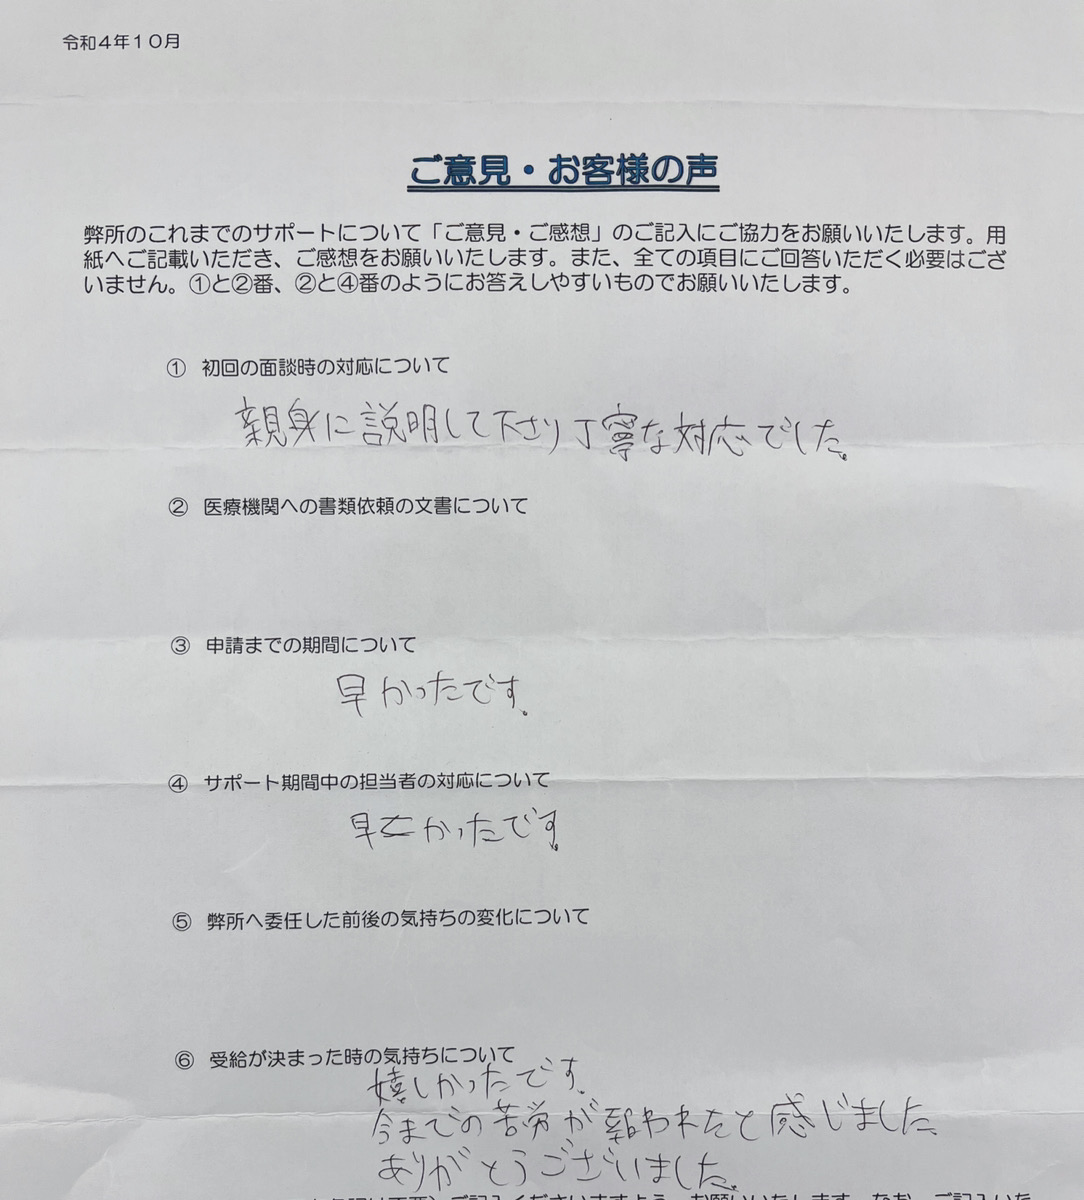 令和4年10月
ご意見・お客様の声
弊所のこれまでのサポートについて「ご意見・ご感想」のご記入にご協力をお願いいたします。用
紙へご記載いただき、ご感想をお願いいたします。また、全ての項目にご回答いただく必要はござ
いません。①と②番、②と④番のようにお答えしやすいものでお願いいたします。
① 初回の面談時の対応について
親身に説明して下さり丁寧な対応でした。
② 医療機関への書類依頼の文書について
③ 申請までの期間について
早かったです。
④ サポート期間中の担当者の対応について
早かったです。
⑤ 弊所へ委任した前後の気持ちの変化について
⑥ 受給が決まった時の気持ちについて
嬉しかったです。
今までの苦労が報われたと感じました。
ありがとうございました。
ご記入くださいますよう、お願いいたします。なお、ご記入いた